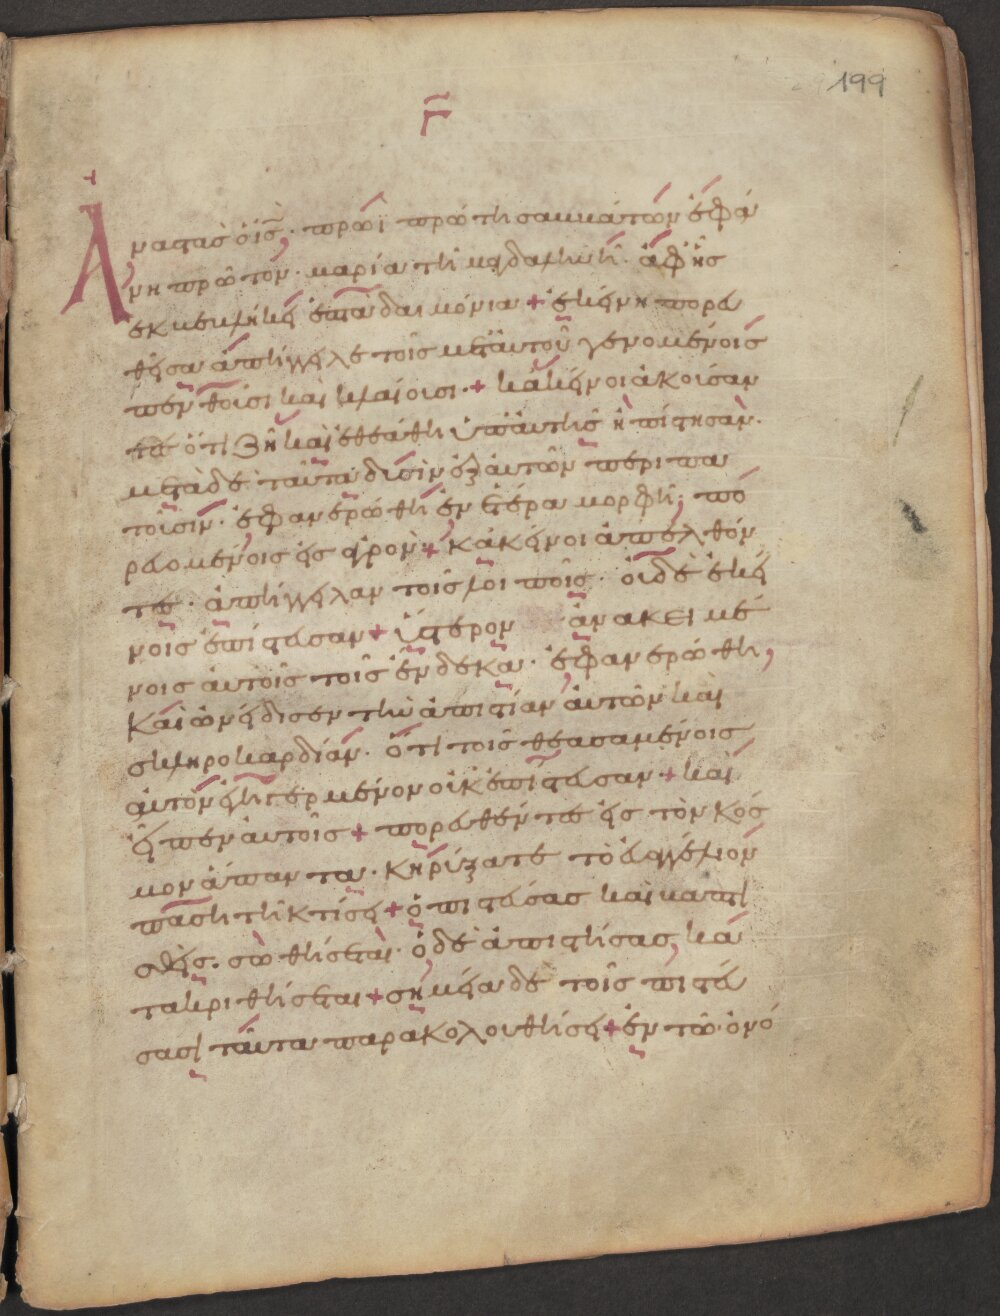 199
Γ
Ἀναστὰς ὁ ἰ̅ς̅· πρωῒ πρώτη σαμμάτων ἐφά
νη πρῶτον· μαρία τῆ μαγδαληνῆ· ἀφ ἧς
ἐκμεκλήκει ἑπτὰ δαιμόνια + ἐκείνη πορευ
θεῖσα ἀπήγγειλε τοῖς μετ αὐτοῦ γενομένοις
πενθοῦσι καὶ κλαίουσι + κἀκεῖνοι ἀκούσαν
τες ὅτι ζῆ καὶ ἐθεάθη ὑπ αὐτῆς ἠπίστησαν·
μετὰ δὲ ταῦτα δυσὶν ἐξ αὐτῶν περιπα
τοῦσιν· ἐφανερώθη ἐν ἑτέρα μορφῆ· πο
ρευομένοις εἰς ἀγρόν + κἀκεῖνοι ἀπελθόν
τες· ἀπήγγειλαν τοῖς λοιποῖς· οὐδὲ ἐκεί
νοις ἐπίστευσαν + ὕστερον ἀνακειμέ
νοις αὐτοῖς τοῖς ἕνδεκα· ἐφανερώθη,
Καὶ ὠνείδισεν τὴν ἀπιστίαν αὐτῶν καὶ
σκληροκαρδίαν· ὅτι τοῖς θεασαμένοις
αὐτὸν ἐγηγερμένον οὐκ ἐπίστευσαν + καὶ
εἶπεν αὐτοῖς + πορευθέντες εἰς τὸν κόσ
μον ἅπαντα· κηρύξατε τὸ εὐαγγέλιον
πάση τῆ κτίσει + ὁ πιστεύσας καὶ βαπτι
σθεὶς· σωθήσεται· ὁ δὲ ἀπιστήσας, κα
τακριθήσεται + σημεῖα δὲ τοῖς πιστεύ
σασι ταῦτα παρακολουθήσει + ἐν τῶ ὀνό